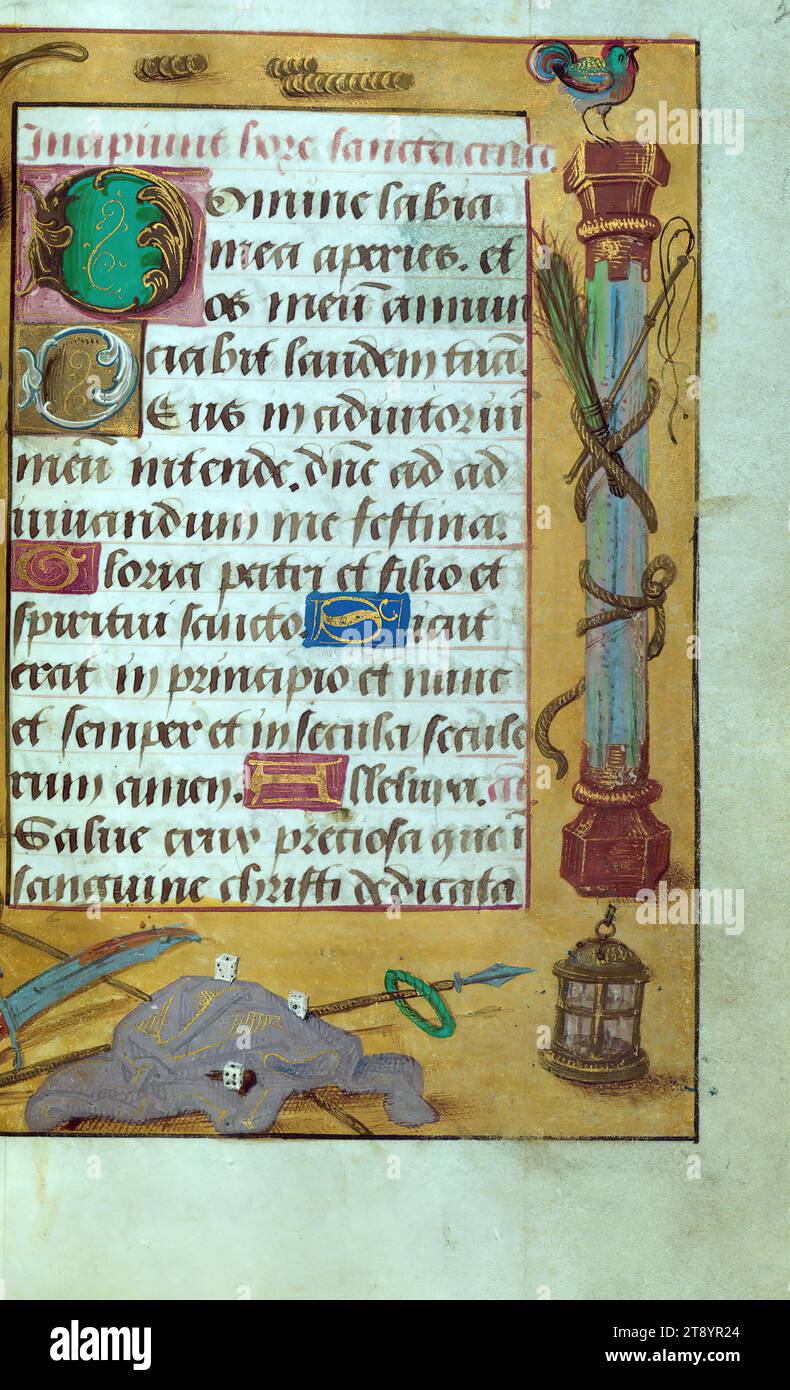 Incipiunt hore sancta cruc
Domine labia
mea aperies. et
os meū annun
ciabit laudem tuā.
Deus in adiutoriū
meū intende. dn̄e ad ad
iuuandum me festina.
Gloria patri et filio et
spiritui sancto. Sicut
erat in principio et nunc
et semper et in secula seculo
rum amen. Alleluya.
Salue crux preciosa que i
sanguine christi dedicata
a
alamy
Image ID: 2T8YR24
www.alamy.com